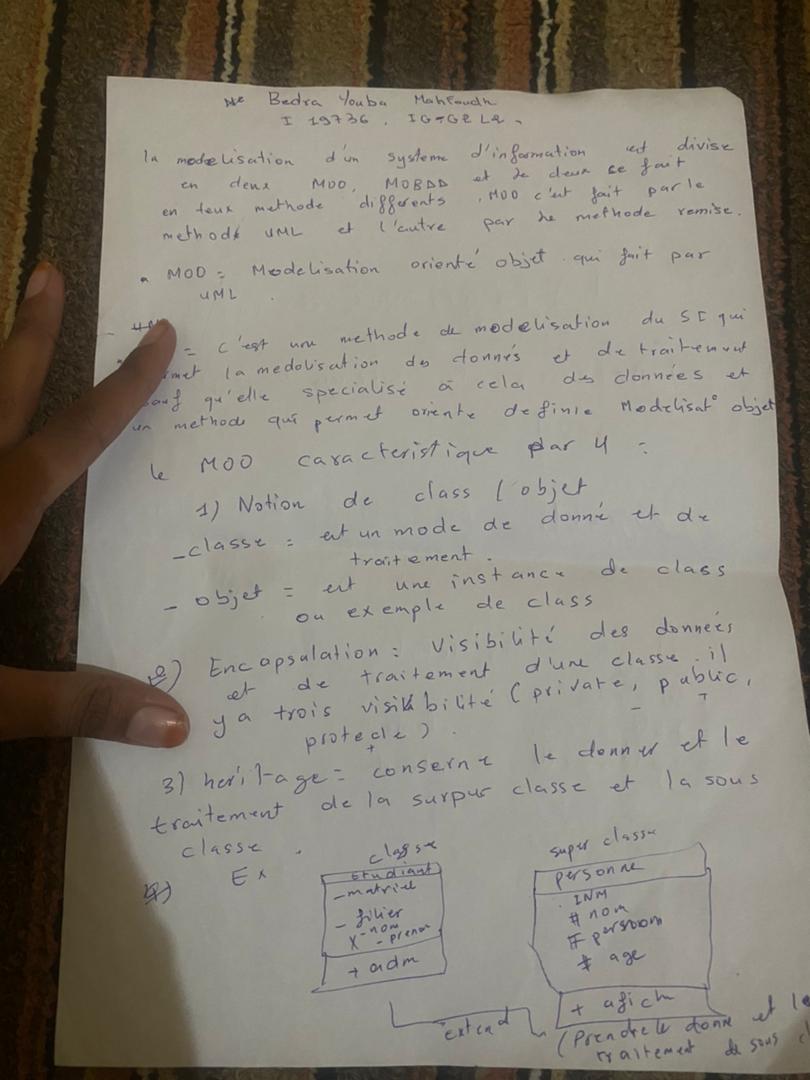 Ne Bedra Youba Mahfoudh
I 19736 . IG-GR L2.
la modelisation d'un systeme d'information est divise
en deux MOO, MOBDD et de deux se fait
en teux methode differents , MOO c'est fait par le
methode UML et l'autre par de methode remise.
MOO = Modelisation orienté objet qui fait par
UML .
= c'est une methode de modelisation du SI qui
la medolisation des donnés et de traitement
qu'elle specialisé à cela des données et
un methode qui permet oriente definie Modelisat° objet
le MOO caracteristique par 4 :
1) Notion de class / objet
- classe = est un mode de donné et de
traitement .
- objet = est une instance de class
ou exemple de class
2) Encapsulation : visibilité des données
et de traitement d'une classe . il
y a trois visibilité ( private, public,
- +
protecle ) .
+
3) herit-age = conserne le donner et le
traitement de la surpur classe et la sous
classe .
Ex
classe
Etudiant
- matricl
- filier
X - nom
- prenom
+ adm
super classe
personne
INM
# nom
# persoom
# age
+ afich
extend
( Prendre le donne et le
traitement de sous